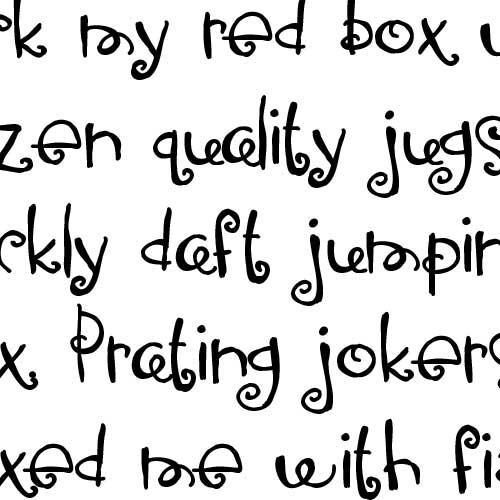 rk my red box w
zen quality jugs
ckly daft jumpin
x. Prating jokers
xed me with fi